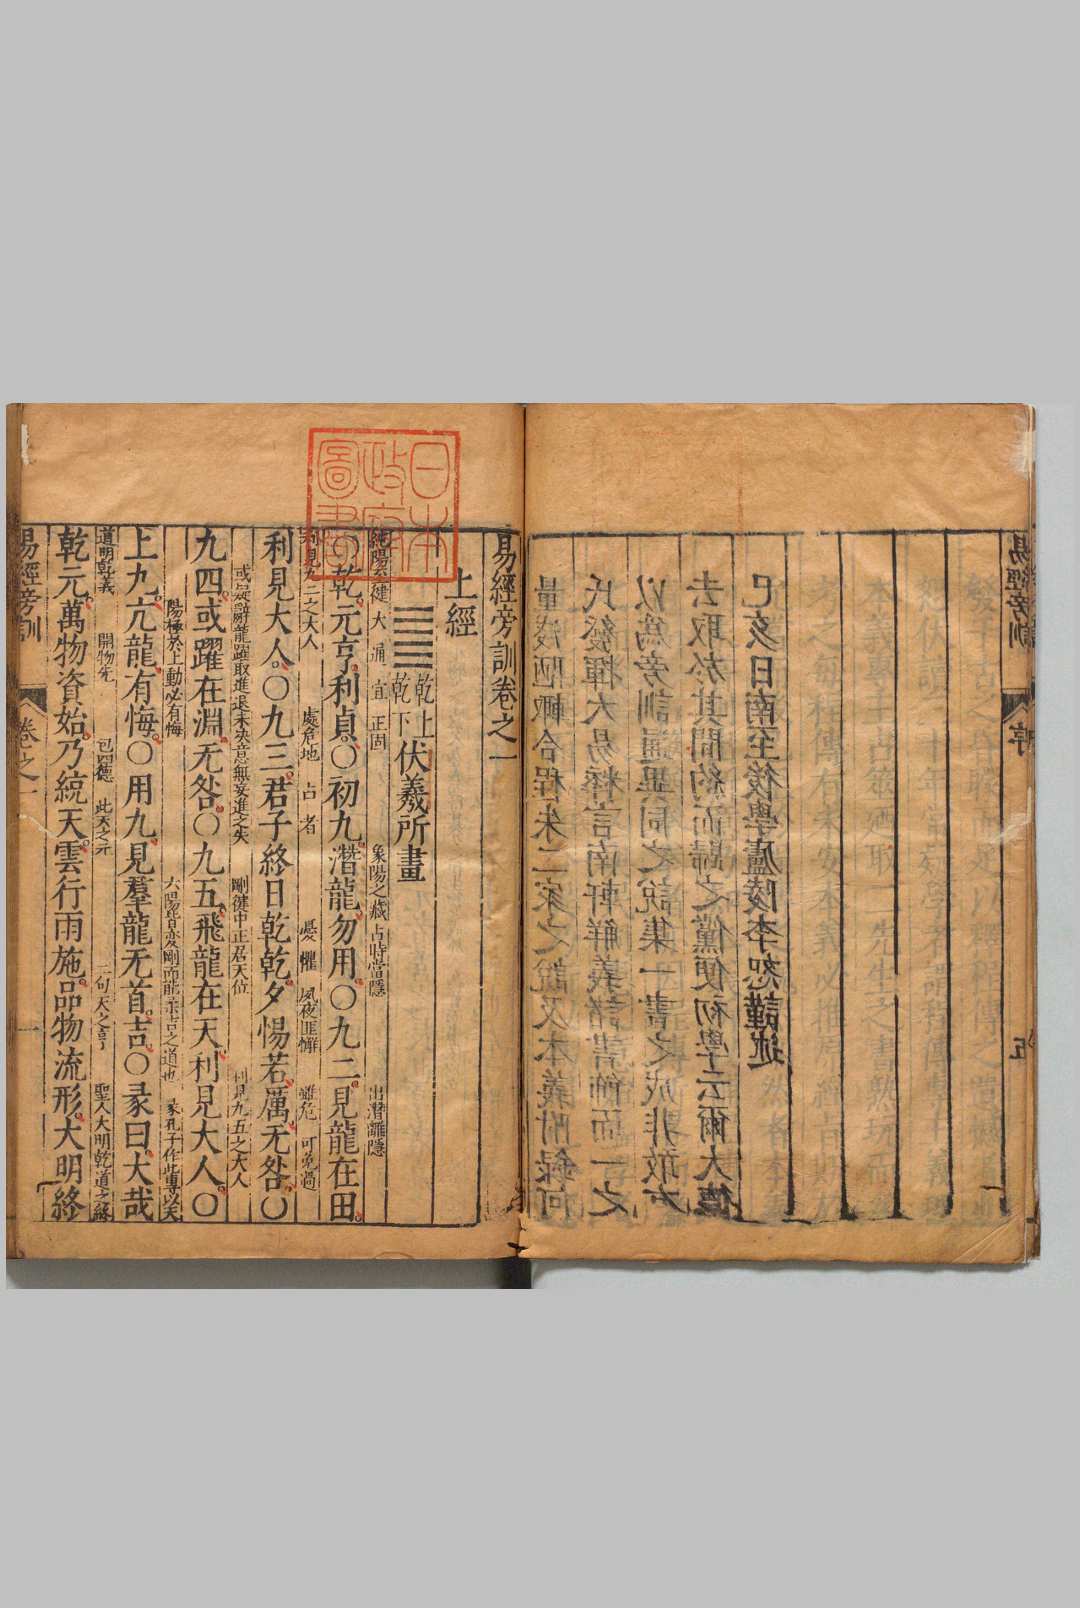 易經旁訓
序
五
量淺陋輒合程朱二家之說及本義附錄何
氏發揮大易粹言南軒解義諸書節而一之
以為旁訓之說集一書之成非敢有
去取於其間約而歸之僅便初學云爾大德
己亥日南至後學廬陵李恕謹述
日本
政府
圖書
易經旁訓卷之一
上經
乾上
乾下
伏羲所畫
純陽至健 大 通 宜 正固 象陽之藏 占時當隱 出潛離隱
乾元亨利貞〇初九潛龍勿用〇九二見龍在田
利見九二之大人 處危地 占者 憂懼 夙夜匪懈 雖危 可免過
利見大人〇九三君子終日乾乾夕惕若厲无咎〇
或疑辭龍躍取進退未決意無妄進之失 剛健中正居天位 利見九五之大人
九四或躍在淵无咎〇九五飛龍在天利見大人〇
陽極於上動必有悔 六陽皆變剛而能柔吉之道也 彖孔子作此專以天
上九亢龍有悔〇用九見羣龍无首吉〇彖曰大哉
道明乾義 開物先 包四德 此天之元 二句天之亨 聖人大明乾道之終
乾元萬物資始乃統天雲行雨施品物流形大明終
易經旁訓
卷之一
一